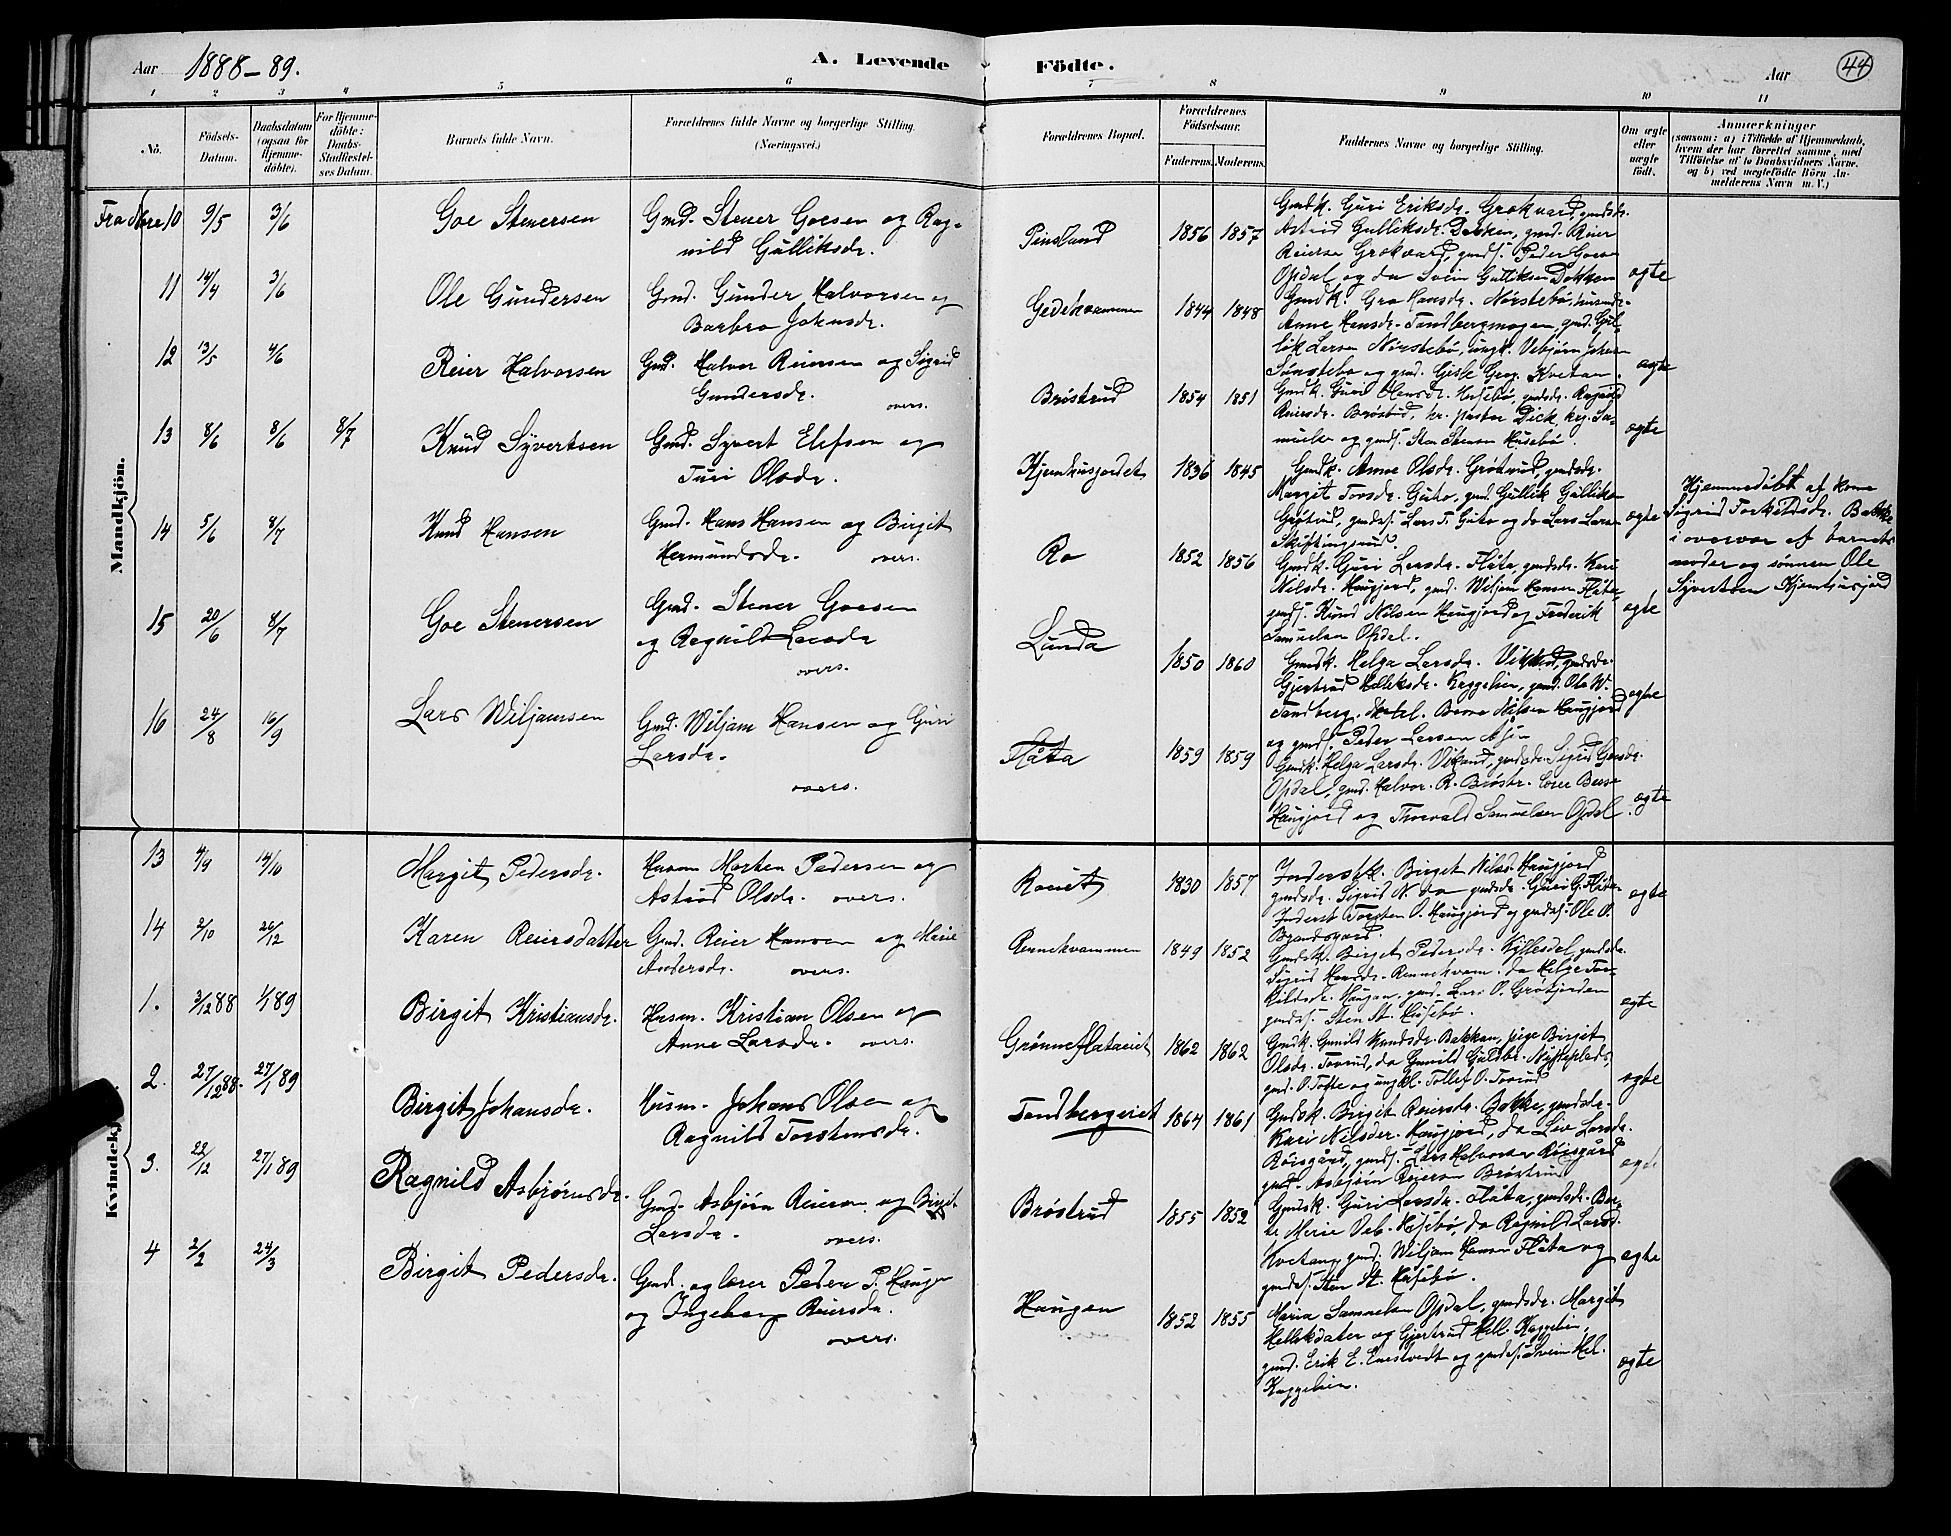 Aar 1888-89.
A. Levende Födte.
Aar
44
1 2 3 4 5 6 7 8 9 10 11
No.
Födsels-Datum.
Daabsdatum (ogsaa for Hjemme-döbte).
For Hjemme-döbte: Daabs-Stadfæstel-ses Datum.
Barnets fulde Navn.
Forældrenes fulde Navne og borgerlige Stilling. (Næringsvei.)
Forældrenes Bopæl.
Forældrenes Födselsaar.
Faderens. Moderens.
Faddernes Navne og borgerlige Stilling.
Om ægte eller uægte födt.
Anmærkninger
(saasom: a) i Tilfælde af Hjemmedaab,
hvem der har forrettet samme, med
Tilföielse af to Daabsvidners Navne.
og b) ved uægtefödte Börn An-
melderens Navn m. V.)
Mandkjön.
Fra Nore 10 9/5 3/6 Goe Stenersen
Gmd. Stener Goesen og Rag-
nild Gulliksdr.
Pensland 1856 1857
Gmdk. Guri Eriksdr. Grokvard, gmdsdr.
Astrid Gulliksdr. Dokken, gmd. Reier
Reiersen Grokvard, gmds. Peder Goesen
Opdal og do Svein Gulliksen Dokken
ægte
11 14/4 3/6 Ole Gundersen
Gmd. Gunder Halvorsen og
Barbro Johnsdr.
Gedehvammen 1844 1848
Gmdk. Gro Hansdr. Norstebö,
Anne Hansdr. Tandbergmogen, gmd. Gul-
lik Larsen Norstebö, ungk. Vebjörn Johnsen
og gmd. Gisle Kvetan.
ægte
12 13/5 4/6 Reier Halvorsen
Gmd. Halvor Reiersen og Sigrid
Gundersdr.
overs.
Bröstrud 1854 1851
Gmdk. Guri Husebö, gmdsdr. Ragnild
Reiersdr. Bröstrud, hr. pastor Dick, krg. Sa-
muelsen og gmds. Sten Stensen Husebö.
ægte
13 8/6 8/6 8/7 Knud Syvertsen
Gmd. Syvert Elefsen og
Turi Olsdr.
Kjemhusjordet 1836 1845
Gmdk. Anne Olsdr. Grötrud, gmdsdr.
Margit Torsdr. Guto, gmd. Gullik Gulliksen
Grötrud, gmds. Lars T. Guto og do Lars Larsen
Skiftingsrud.
ægte
Hjemmedöbt af kone
Sigrid Torkildsdr. Bakke
i overvær af barnets
moder og sönnen Ole
Syvertsen Kjemhusjord
14 5/6 8/7 Knud Hansen
Gmd. Hans Hansen og Birgit
Hermundsdr. overs.
Ro 1852 1856
Gmdk. Guri Larsdr. Flåta, gmdsdr. Kari
Nilsdr. Haugjord, gmd. Wiljam Hansen Flåta,
gmds. Knud Nilsen Haugjord og Frederik
Samuelsen Opdal.
ægte
15 20/6 8/7 Goe Stenersen
Gmd. Stener Goesen
og Ragnild Larsdr
overs.
Lunda 1850 1860
Gmdk. Helga Larsdr. gmdsdr.
Gjertrud Helliksdr. Kaggelien, gmd. Ole W.
Tandberg, Nilsen Haugjord
og gmds. Peder Larsen
ægte
16 24/8 16/9 Lars Wiljamsen
Gmd. Wiljam Hansen og Guri
Larsdr.
overs.
Flåta 1859 1859
Gmdk. Helga Larsdr. gmdsdr. Sigrid Goesdr.
Opdal, gmd. Halvor R. Bröstr. lærer
Haugjord og Torvald Samuelsen Opdal.
ægte
Kvindekj
13 4/9 14/10 Margit Pedersdr.
Husm Morten Pedersen og
Astrid Olsdr. overs.
Roeiet 1830 1857
Inderstk. Birget Nilsd. Haugjord
gmdsdr. Sigrid N. do gmdsdr. Guri G. Flåta,
Inderst Torsten O. Haugjord og gmds. Ole O.
ægte
14 2/10 26/12 Karen Reiersdatter
Gmd. Reier Hansen og Marie
Andersdr. overs.
Rennehvammen 1849 1852
Gmdsk. Birget Pedersdr. gmdsdr.
Sigrid Hansdr. Rennehvam. do Helge Tor-
kildsdr. Haugen, gmd. Lars O. Grötjorden
gmds. Sten St. Husebö.
ægte
1. 3/12 88 4/1 89 Birgit Kristiansdr.
Husm. Kristian Olsen og
Anne Larsdr. overs.
Grönneflataeiet 1862 1862
Gmdk. Gunild Knudsdr. Bakken, pige Birget
Olsdr. Torrud, do Gunild
gmd. O. Tofte og ungkl. Tollef O. Torrud
ægte
2. 27/12 88. 27/1 89 Birgit Johansdr.
Husm. Johans Olsen og
Ragnild Torstensdr.
Tandbergeiet 1864 1861
Gmdsk. Birgit Reiersdr. Bakke, gmdsdr.
Kari Nilsder. Haugjord, do Liv Larsdr.
Röisgård, gmds. Lars Halvorsen Röisgård
gmd. Asbjörn Reiersen Bröstrud
ægte
3. 22/12 27/1 89 Ragnild Asbjörnsdr.
Gmd. Asbjörn Reiersen og Birgit
Larsdr. overs.
Bröstrud 1855 1852
Gmdsk. Guri Larsdr. Flåta, gmdsdr. Ber-
te Marie Husebö, do Ragnild Larsd.
Kvetan, gmd. Wiljam Hansen Flåta og
gmds. Sten St. Husebö.
ægte
4 2/2 24/3 Birgit Pedersdr.
Gmd. og lærer Peder P. Haugen
og Ingeborg Reiersdr.
overs.
Haugen 1852 1855
Maria Samuelsen Opdal, gmdsdr. Margit
Hellikdater og Gjertrud Hell. Kaggelien,
gmd. Erik E. Enestvedt og gmds. Svein Hel.
Kaggelien.
ægte